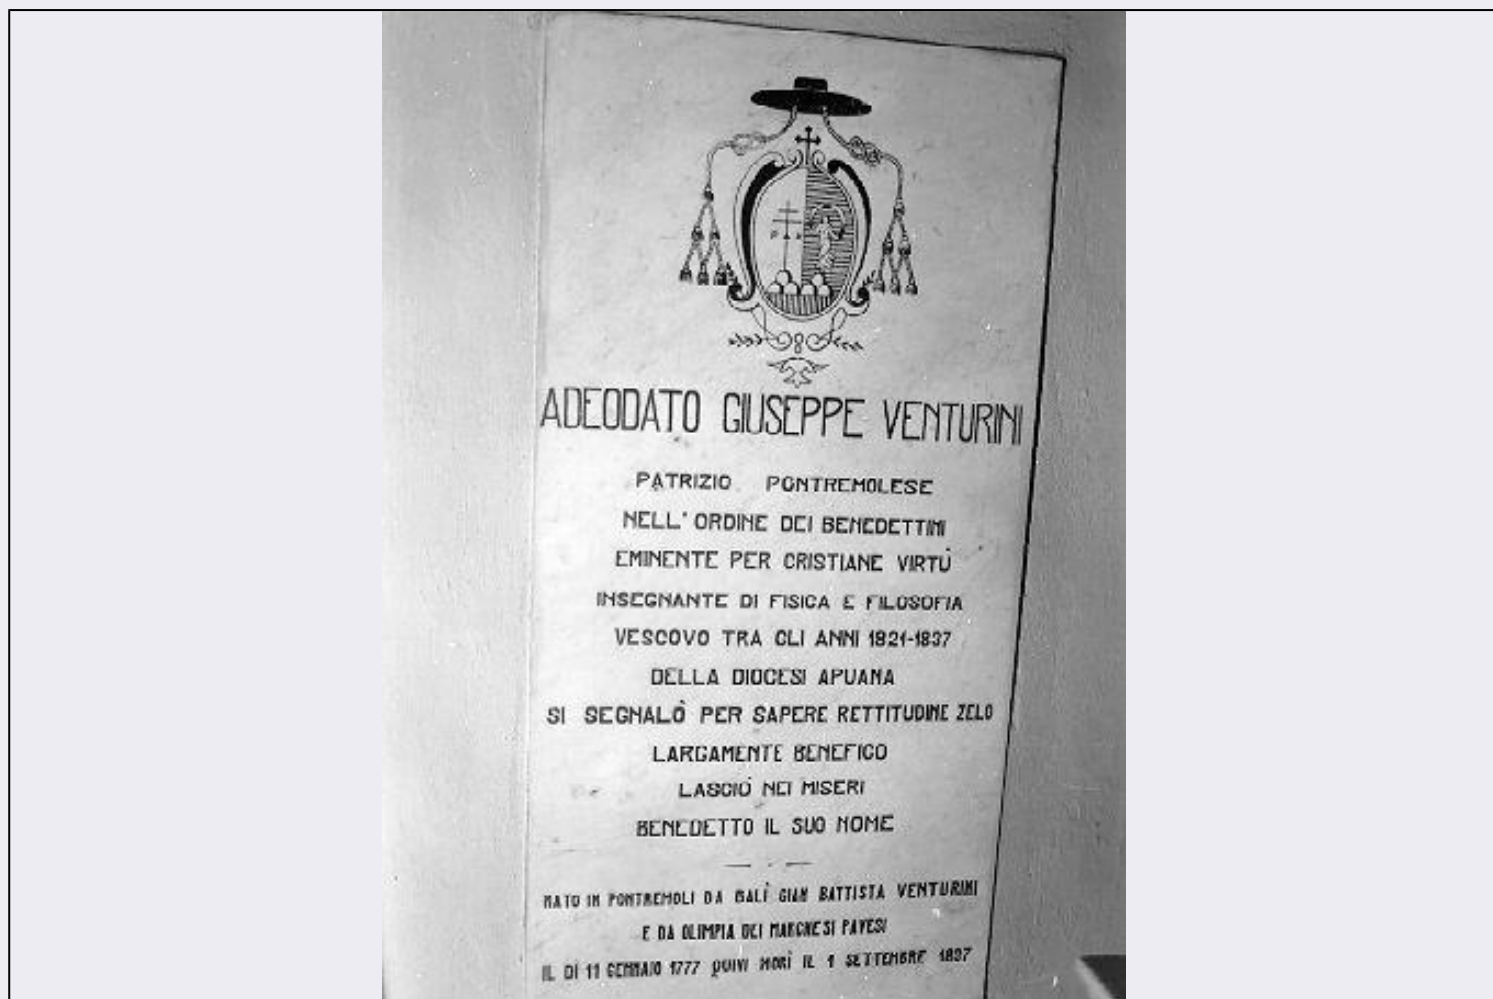 PAX
ADEODATO GIUSEPPE VENTURINI
PATRIZIO PONTREMOLESE
NELL'ORDINE DEI BENEDETTINI
EMINENTE PER CRISTIANE VIRTÙ
INSEGNANTE DI FISICA E FILOSOFIA
VESCOVO TRA GLI ANNI 1821-1837
DELLA DIOCESI APUANA
SI SEGNALÒ PER SAPERE RETTITUDINE ZELO
LARGAMENTE BENEFICO
LASCIÒ NEI MISERI
BENEDETTO IL SUO NOME
NATO IN PONTREMOLI DA BALÌ GIAN BATTISTA VENTURINI
E DA OLIMPIA DEI MARCHESI PAVESI
IL DÌ 11 GENNAIO 1777 QUIVI MORÌ IL 1 SETTEMBRE 1837